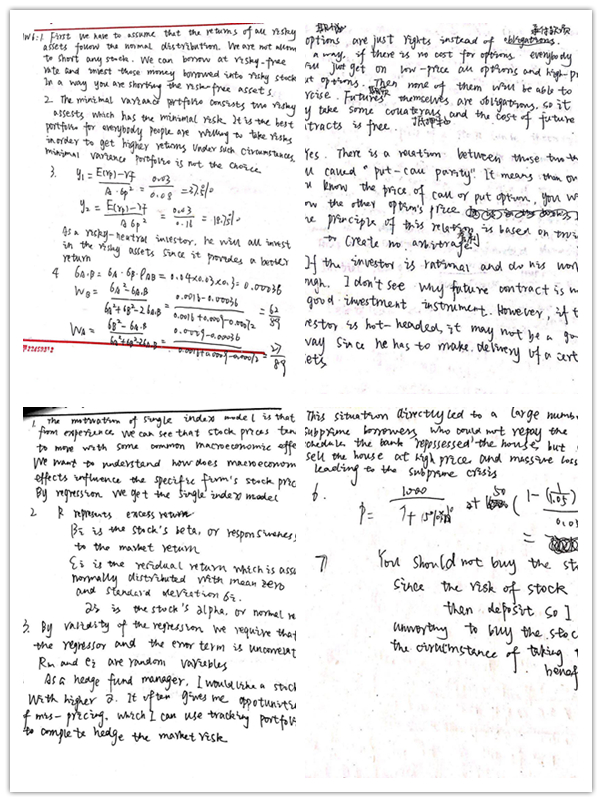 W6:1 First we have to assume that the returns of all risky
assets follow the normal distribution. We are not allow
to short any stock. We can borrow at risky-free
rate and invest those money borrowed into risky stock
In a way you are shorting the risk-free assets.
2. The minimal variance portfolio consists two risky
assests which has the minimal risk. It is the best
portfolio for everybody people are willing to take risks
inorder to get higher returns Under such circumstances,
minimal variance portfolio is not the choice.
3. y1 = E(rp)-rf / A·6p² = 0.03 / 0.08
y2 = E(rp)-rf / A 6p² = 0.03 / 0.16 = 18.75%
As a risky-neutral investor, he will all invest
in the risky assets since it provides a better
return
4 6A·B = 6A·6B·ρAB = 0.04×0.03×0.3 = 0.00036
WB = 6A²-6A.B / 6A²+6B²-26A.B = 0.0016-0.00036 / = 62/89
WA = 6B²-6A.B / 6A²+6B²-26A.B = 0.0009-0.00036 / = 27/89
options are just rights instead of obligations.
a way, if there is no cost for options everybody
just get on low-price all options and high-pr
options. Then none of them will be able to
rcise. Futures themselves are obligations, so it
y take some and the cost of future
tracts is free.
Yes. There is a relation between those two
called "put-call parity". It means that
know the price of call or put option, you w
ow the other option's price
principle of this relation is based on
to create no arbitrage
If the investor is rational and do his wor
ugh. I don't see why future contract is n
good investment instrument. However, if t
vestor is hot-headed, it may not be a go
way since he has to make delivery of a cert
ets
1. The motivation of single index model is that
from experience we can see that stock prices ten
to move with some common macroeconomic effe
We want to understand how does macroeconom
effects influence the specific firm's stock pric
By regression We get the single index model
2 R reprents excess return
βi is the stock's beta, or responsiveness
to the market return
εi is the residual return which is ass
normally distributed with mean zero
and standard deviation 6i.
is the stock's alpha, or normal re
3. By validity of the regression we require that
the regressor and the error term is uncorrelat
Rm and ei are random variables
As a hedge fund manager, I would like a stock
With higher 2. It often gives me oppotunitie
f miss-pricing, which I can use tracking portfol
to complete hedge the market risk
This situation directly led to a large numb
subprime borrowers who could not repay the
schedule. the bank repossessed the house, but
sell the house at high price and massive loss
leading to the subprime crisis
6. P = 1000 / + 50 (1-(1/1.05)
7 You should not buy the sto
since the risk of stock
then deposit so I
unworthy to buy the stoc
the circumstance of taking
benef